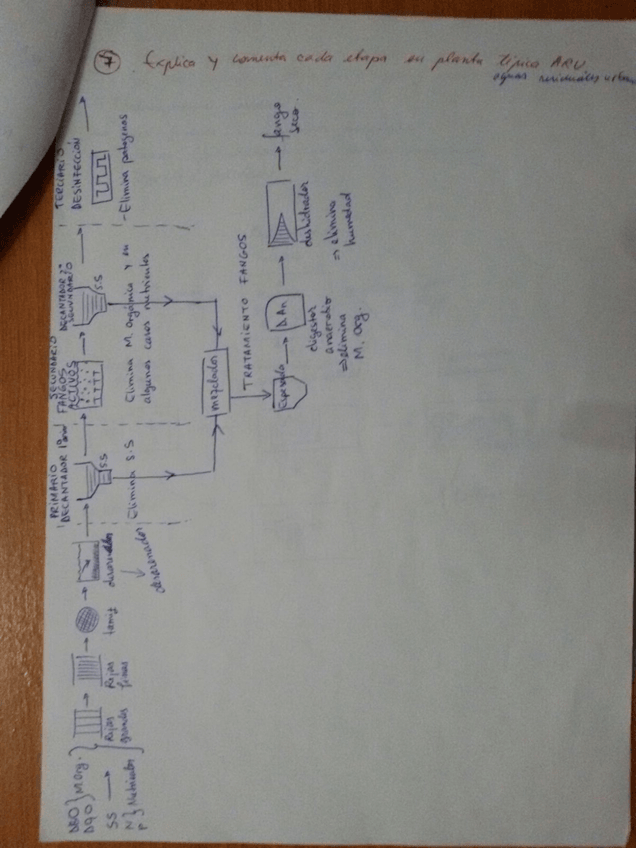 7 Explica y comenta cada etapa en planta típica ARU
aguas residuales urban
DBO } M.Org.
DQO
SS
N } Nutrientes
P
Rejas
grandes
Rejas
finas
tamiz
desarenador
desarenador
PRIMARIO
DECANTADOR 1ario
S.S
Elimina S.S
SECUNDARIO
FANGOS
ACTIVOS
DECANTADOR 2º
SECUNDARIO
S.S
Elimina M. Orgánica y en
algunos casos nutrientes
TERCIARIO
DESINFECCIÓN
- Elimina patogenos
mezclador
TRATAMIENTO FANGOS
D.An
digestor
anaerobio
⇒ elimina
M. Org.
deshidratador
⇒ elimina
humedad
fango
seco.